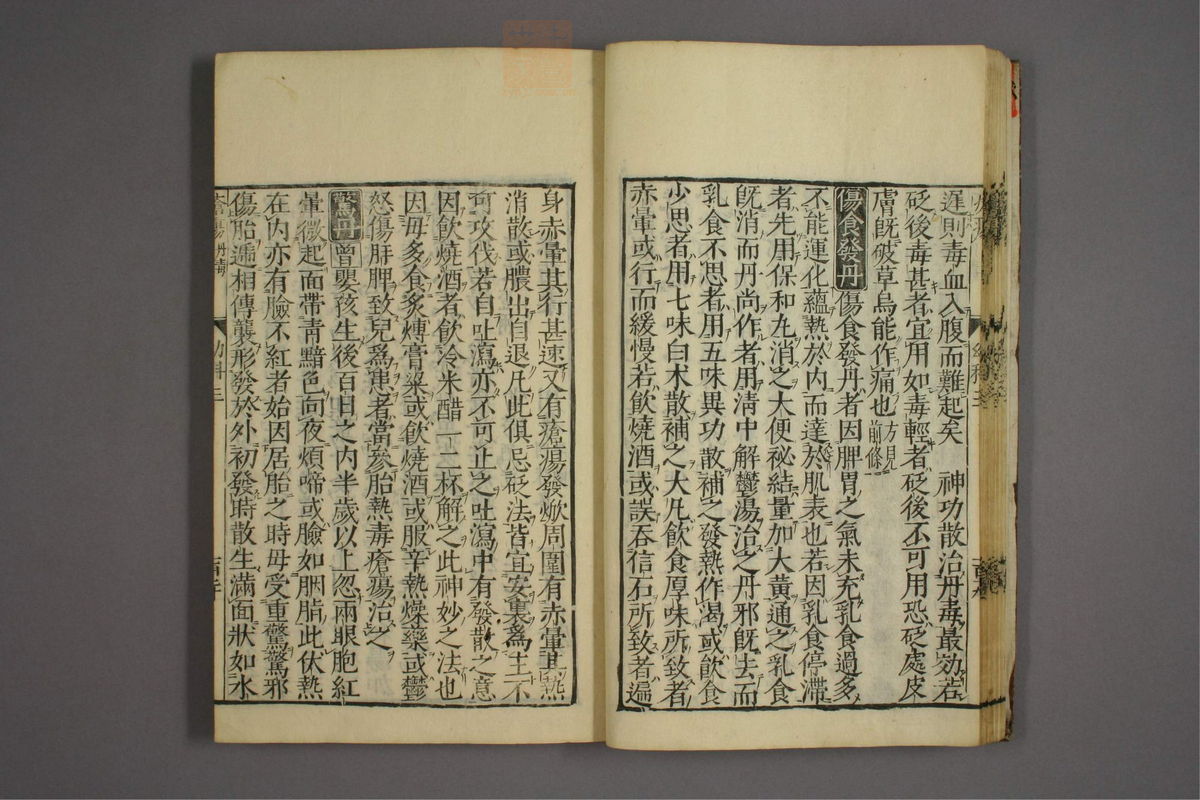 遲則毒血入腹而難起矣　神功散治丹毒最効若
砭後毒甚者宜用如毒輕者砭後不可用恐砭處皮
膚既破草烏能作痛也方見前條
傷食發丹傷食發丹者因脾胃之氣未充乳食過多
不能運化蘊熱於内而達於肌表也若因乳食停滯
者先用保和丸消之大便祕結量加大黄通之乳食
既消而丹尚作者用清中解鬱湯治之丹邪既去而
乳食不思者用五味異功散補之發熱作渴或飲食
少思者用七味白朮散補之大凡飲食厚味所致者
赤暈或行而緩慢若飲燒酒或誤吞信石所致者遍
身赤暈其行甚速又有瘡瘍發焮周圍有赤暈其熱
消散或膿出自退凡此俱忌砭法皆宜安裏爲主不
可攻伐若自吐瀉亦不可止之吐瀉中有發散之意
因飲燒酒者飲冷米醋一二杯解之此神妙之法也
因毋多食炙煿膏粱或飲燒酒或服辛熱燥藥或鬱
怒傷肝脾致兒爲患者當參胎熱毒瘡瘍治之
驚丹曾嬰孩生後百日之内半歲以上忽兩眼胞紅
暈微起面帶青黯色向夜煩啼或臉如胭脂此伏熱
在内亦有臉不紅者始因居胎之時毋受重驚驚邪
傷胎遞相傳襲形發於外初發時散生滿面狀如水
幼科三